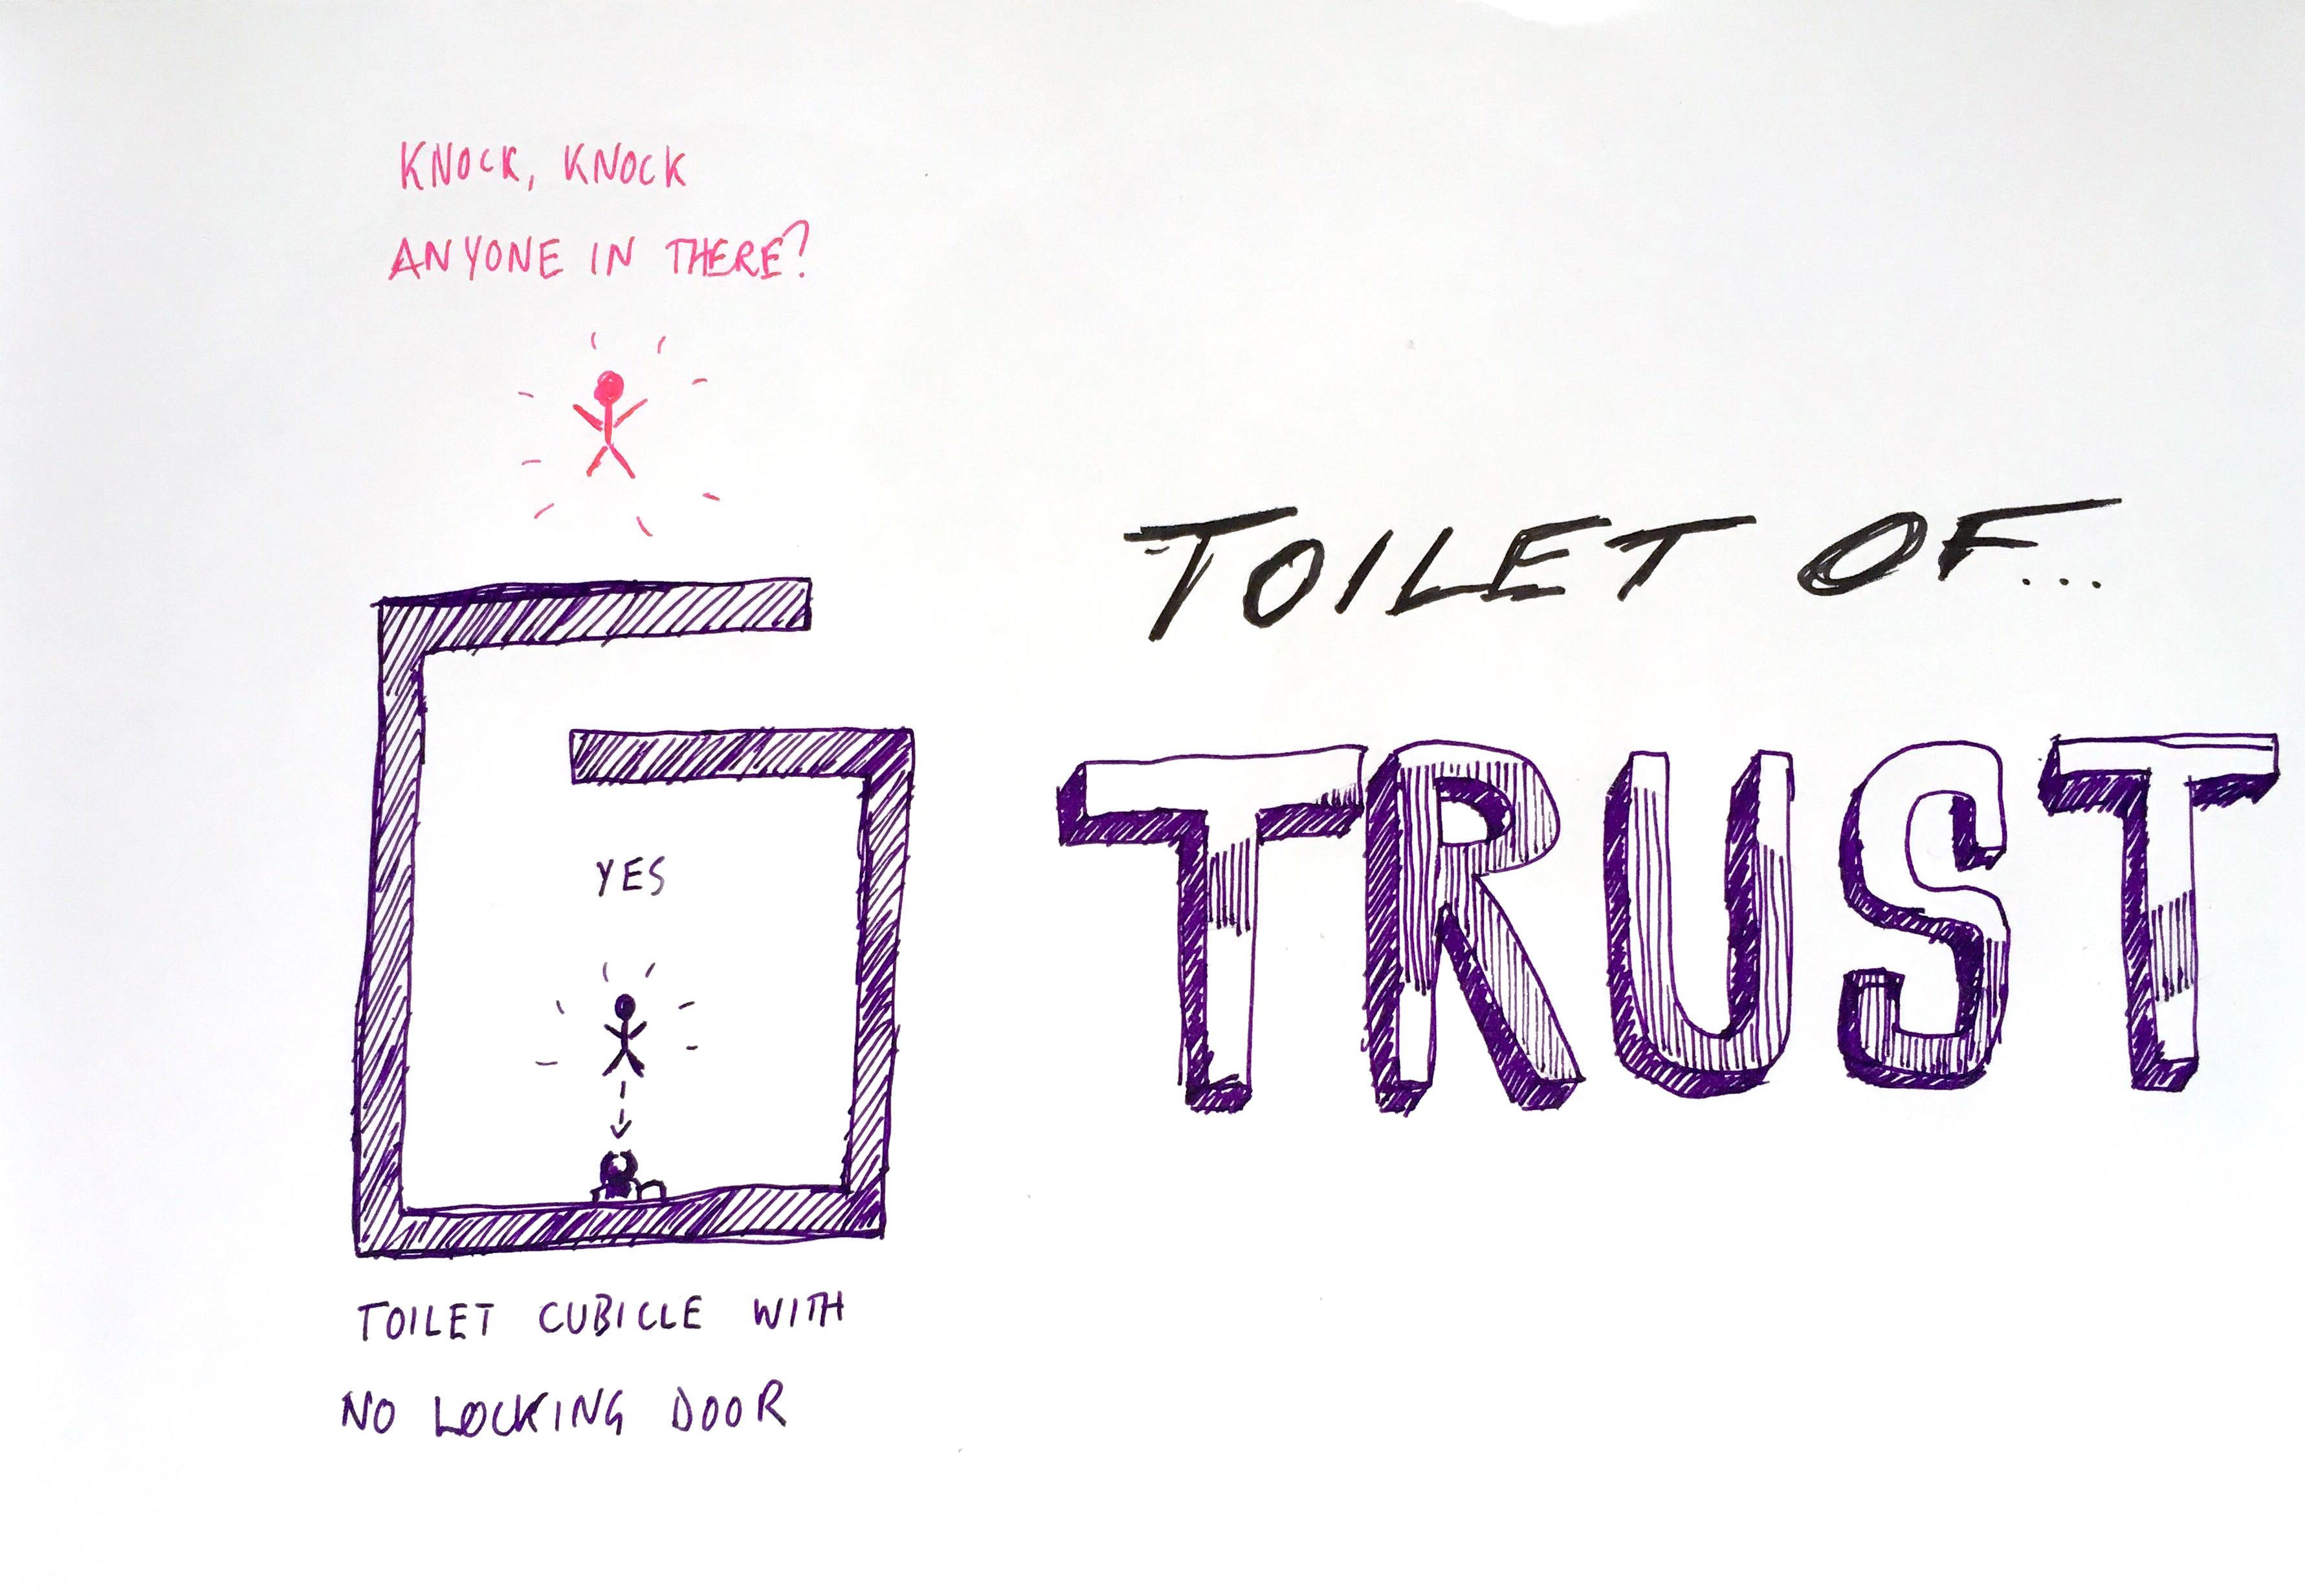 KNOCK, KNOCK
ANYONE IN THERE?
TOILET OF...
TRUST
YES
TOILET CUBICLE WITH
NO LOCKING DOOR